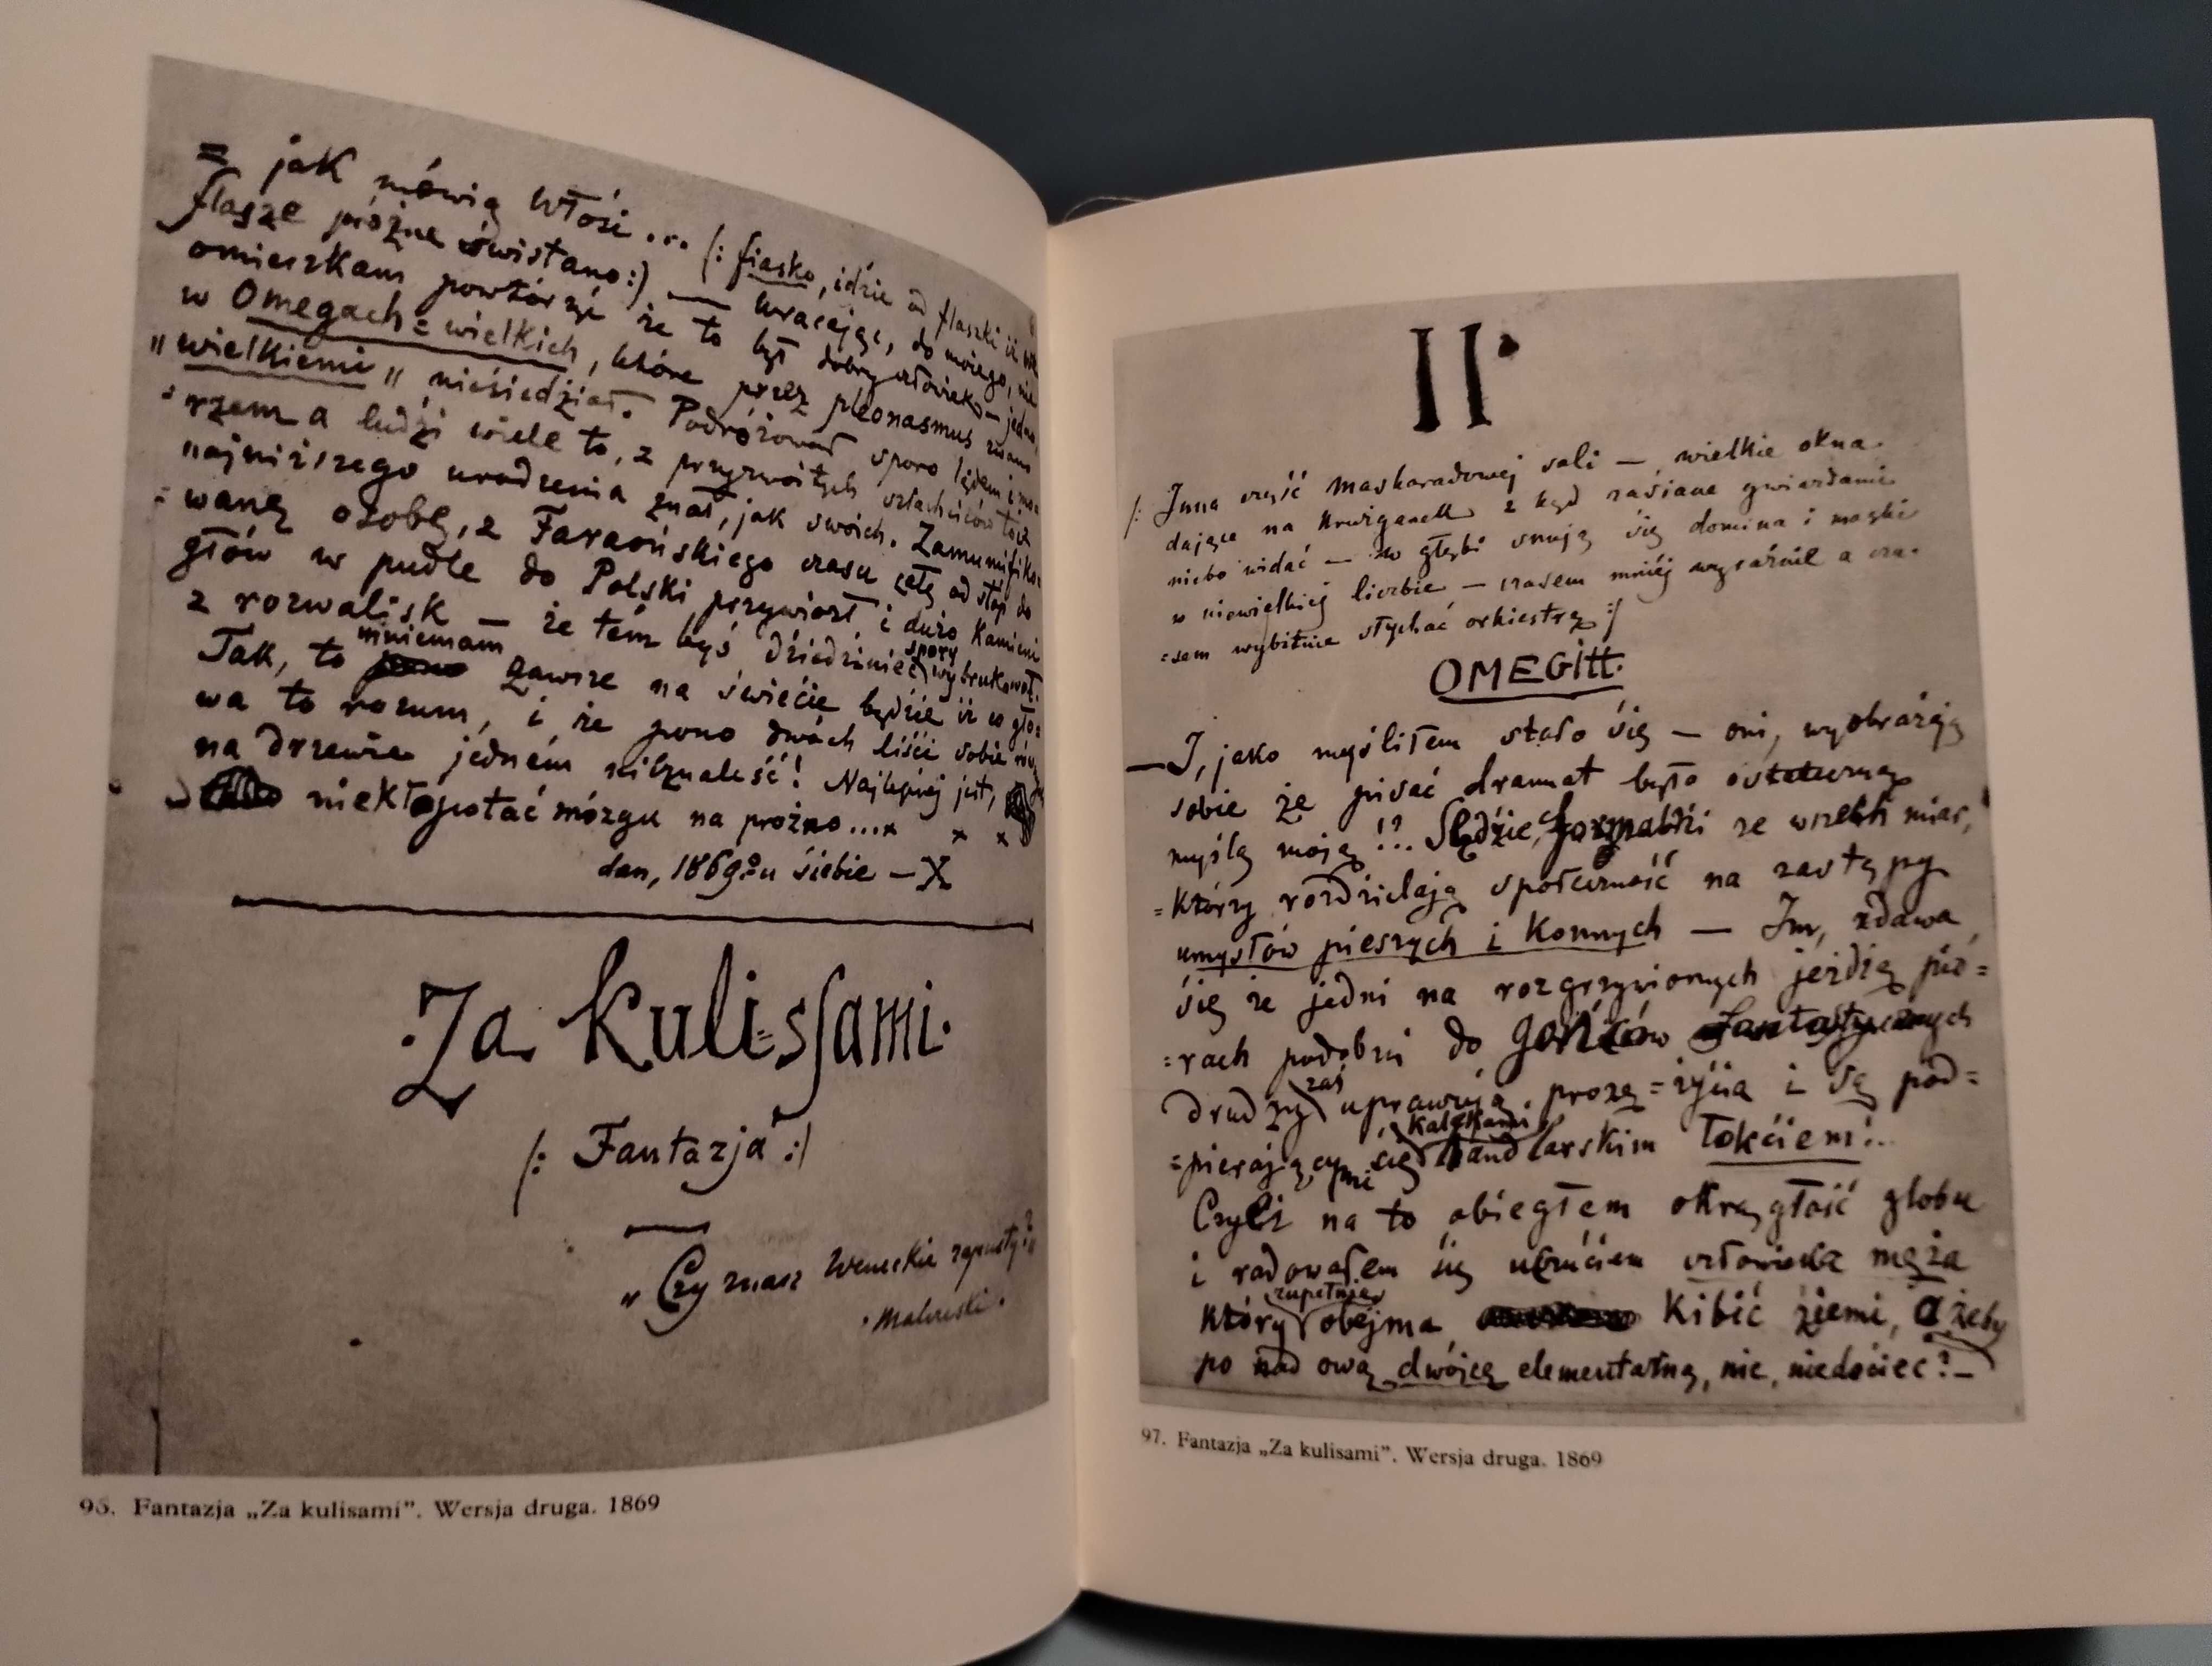 = jak mówią Włosi ... /: fiasko, idzie od flaszki iż
flasze próżne świstano :) — Wracając, do mojego, nie
omieszkam powtórzyć że to był dobry człowiek — jedno
w Omegach = wielkich, które przez pleonasmus zwano
"wielkiemi" niesiedział. Podróżował sporo lądem i mo=
=rzem a ludzi wiele to, z przyzwoitych szlachciców toż
najniższego urodzenia znał, jak swoich. Zamumifiko=
=waną osobę, z Faraońskiego czasu całą od stóp do
głów w pudle do Polski przywiózł i dużo kamieni
z rozwalisk — że tém byś dziedziniec spory wybrukował.
Tak, to mniemam zawsze na świecie będzie iż co gło=
wa to rozum, i że pono dwóch liści sobie
na drzewie jedném nieznaleść! Najlepiej jest,
niekłopotać mózgu na próżno... x x x
dan, 1869o u siebie — X
Za Kulissami.
/: Fantazja :/
"Czy znasz Weneckie zapusty?"
Malczeski.
96. Fantazja „Za kulisami”. Wersja druga. 1869
II.
/: Inna część maskaradowej sali — wielkie okna
dające na krużganek z kąd zasiane gwiazdami
niebo widać — w głębi snują się domina i maski
w niewielkiej liczbie — czasem mniéj wyraźnie a cza=
=sem wybitnie słychać orkiestrę :/
OMEGITT.
— I, jako myśliłem stało się — oni, wyobrażają
sobie że pisać dramat było ostateczną
myślą moją!?.. Sędzie, formaliści ze wszech miar,
=którzy rozdzielają społeczność na zastępy
umysłów pieszych i konnych — Im, zdawa
się że jedni na rozgrzywionych jeżdżą pió=
=rach podobni do gońców fantastycznych
drudzy zaś uprawują prozę=życia i są pod=
=pierającymi się kalekami handlarskim łokciem!..
Czyliż na to obiegłem okrągłość globu
i radowałem się uczuciem człowieka męża
który zupełnie obejma kibić ziemi, ażeby
po nad ową dwójcę elementarną, nic, niedociec?—
97. Fantazja „Za kulisami”. Wersja druga. 1869